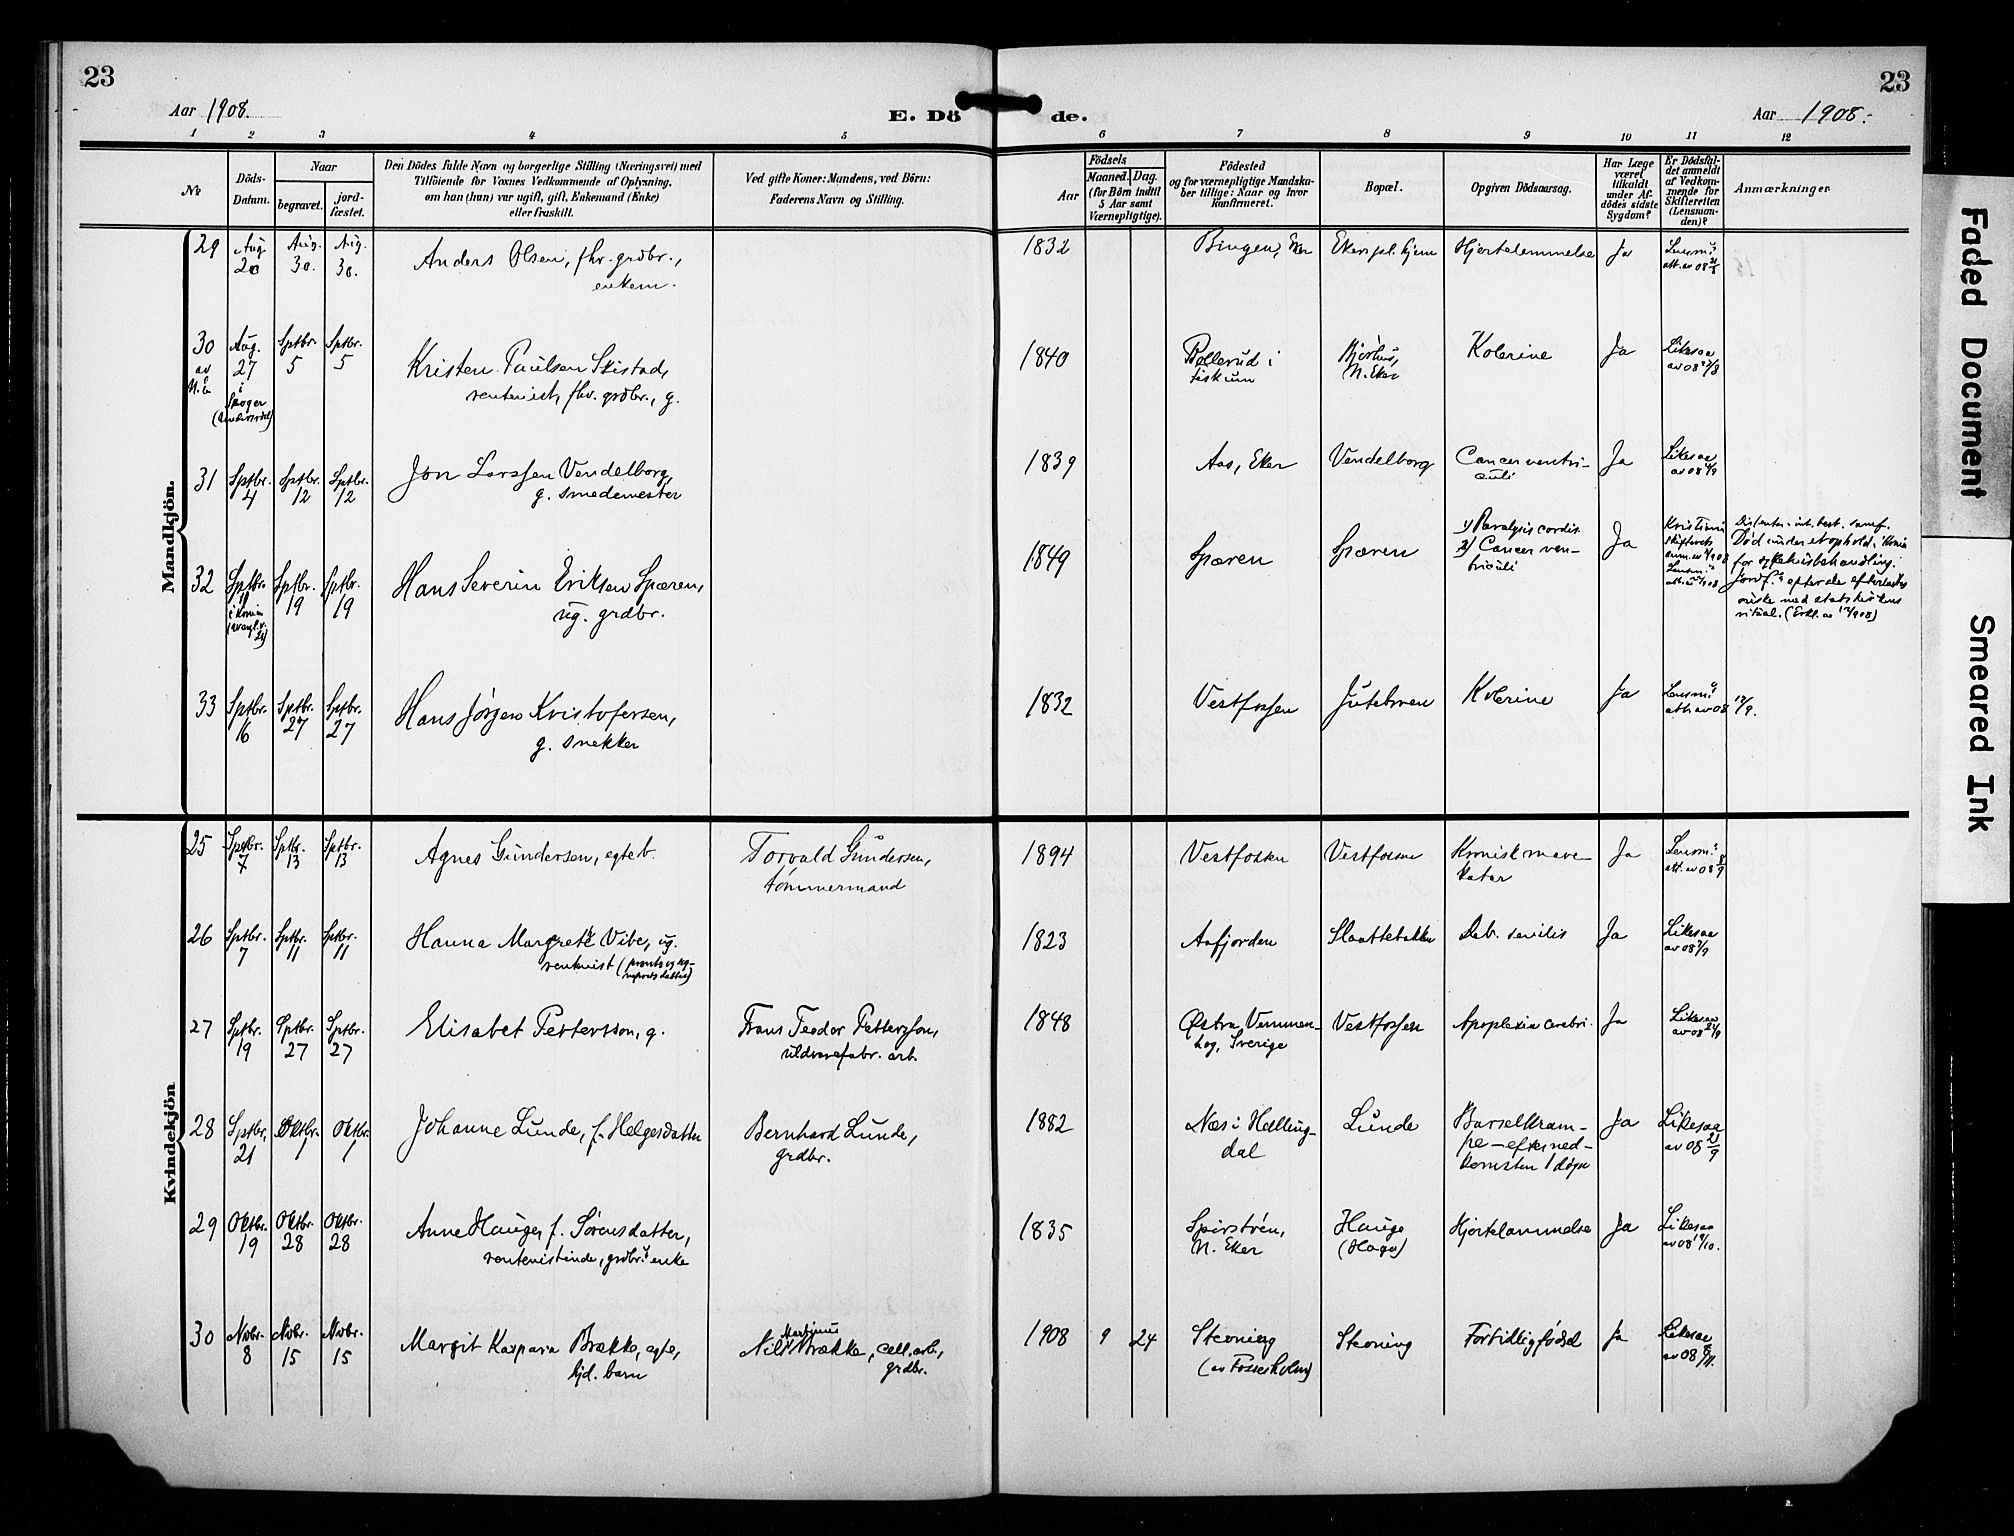 23
23
Aar 1908.
E. Dö
de.
Aar 1908.-
1 2 3 4 5 6 7 8 9 10 11 12
No
Döds-
Datum.
Naar
begravet.
jord-
fæstet.
Den Dödes fulde Navn og borgerlige Stilling (Næringsvei) med
Tilföiende for Voxnes Vedkommende af Oplysning,
om han (hun) var ugift, gift, Enkemand (Enke)
eller fraskilt.
Ved gifte Koner: Mandens, ved Börn:
Faderens Navn og Stilling.
Aar
Födsels
Maaned. Dag.
(for Börn indtil
5 Aar samt
Værnepligtige).
Födested
og for værnepligtige Mandska-
ber tillige: Naar og hvor
konfirmeret.
Bopæl.
Opgiven Dödsaarsag.
Har Læge
været
tilkaldt
under Af-
dödes sidste
Sygdom?
Er Dödsfal-
det anmeldt
af Vedkom-
mende for
Skifteretten
(Lensman-
den)?
Anmærkninger.
Mandkjön.
29
Aug.
20
Aug.
30.
Aug.
30.
Anders Olsen, fhv. grdbr.,
enkem.
1832
Bingen, Eker
Hjertelammelse
Ja
30
av
N. E.
Aug.
27
i
Skoger
Sptbr.
5
Sptbr.
5
Kristen Paulsen Skistad,
rentenist, fhv. grdbr., g.
1840
Bollerud i
Fiskum
N. Eker
Kolerine
Ja
Likesaa
31
Sptbr.
4
Sptbr.
12
Sptbr.
12
Jon Larssen Vendelborg,
g. smedemester
1839
Aas, Eker
Vendelborg
Cancer ventri-
culi
Ja
Likesaa
32
Sptbr.
Sptbr.
19
Sptbr.
19
Hans Severin Eriksen Spæren,
ug. grdbr.
1849
Spæren
Spæren
1) Paralysis cordis
2) Cancer ven-
triculi
Ja
Død under etophold i Kr.nia
for sykehusbehandling.
ritual.
33
Sptbr.
16
Sptbr.
27
Sptbr.
27
Hans Jørgen Kristofersen,
g. snekker
1832
Vestfossen
Kolerine
Ja
Kvindekjön
25
Sptbr.
7
Sptbr.
13
Sptbr.
13
Agnes Gundersen, egteb.
Torvald Gundersen,
tømmermand
1894
Vestfossen
Vestfossen
Kronisk mave-
katar
Ja
26
Sptbr.
7
Sptbr.
11
Sptbr.
11
Hanna Margrete Vibe, ug.
1823
Aafjorden
Slaattebakken
Deb. senilis
Ja
Likesaa
27
Sptbr.
19
Sptbr.
27
Sptbr.
27
Elisabet Pettersson, g.
Frans Teodor Pettersson,
uldvarefabr. arb.
1848
Østra Vemmen-
hög, Sverige
Vestfossen
Apoplexia cerebri
Ja
Likesaa
28
Sptbr.
21
Oktbr.
1
Oktbr.
1
Johanne Lunde, f. Helgesdatter
Bernhard Lunde,
grdbr.
1882
Næs i Halling-
dal
Lunde
Barselkram-
pe – efter ned-
komsten 1 døgn
Ja
Likesaa
av 08 21/9
29
Oktbr.
19
Oktbr.
28
Oktbr.
28
Anne Hauger f. Sørensdatter,
rentenistinde, grdbr.s enke
1835
N. Eker
Hauge
(Haga)
Hjertelammelse
Ja
Likesaa
av 08 19/10.
30
Nvbr.
8
Nvbr.
15
Nvbr.
15
Margit Kaspara Brække, egte,
hjd. barn
Martinus
Nils Brække, cell. arb.,
grdbr.
1908
9
24
Stevning
(av Fossesholm)
Stevning
Fortidlig fødsel
Ja
Likesaa
av 08 8/11.
Faded Document
Smeared Ink